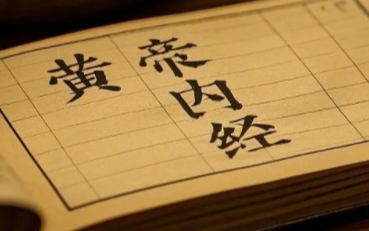 黄帝内经